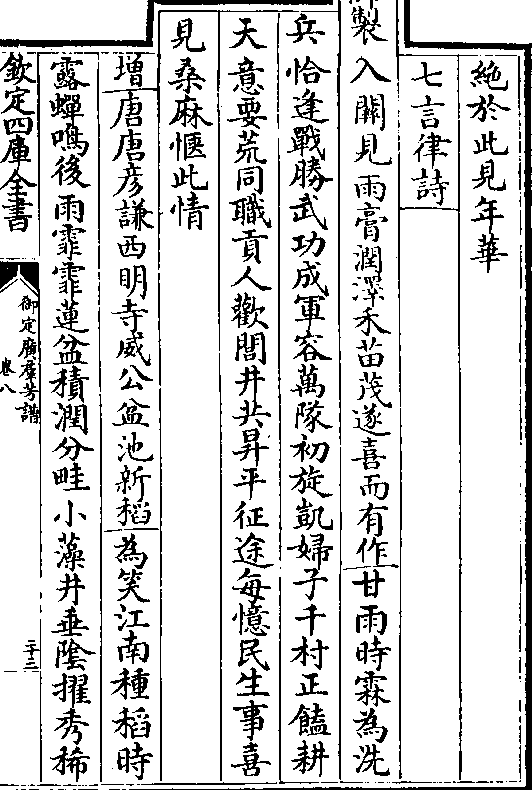 絶於此見年華
七言律詩
製入關見雨膏潤澤禾苗茂遂喜而有作甘雨時霖為洗
兵恰逢戰勝武功成軍容萬隊初旋凱婦子千村正饁耕
天意要荒同職貢人歡閭井共昇平征途每憶民生事喜
見桑麻愜此情
增唐唐彦謙西明寺威公盆池新稻為笑江南種稻時
露蟬鳴後雨霏霏蓮盆積潤分畦小藻井垂陰擢秀稀
欽定四庫全書
御定廣羣芳譜
卷八
二十三